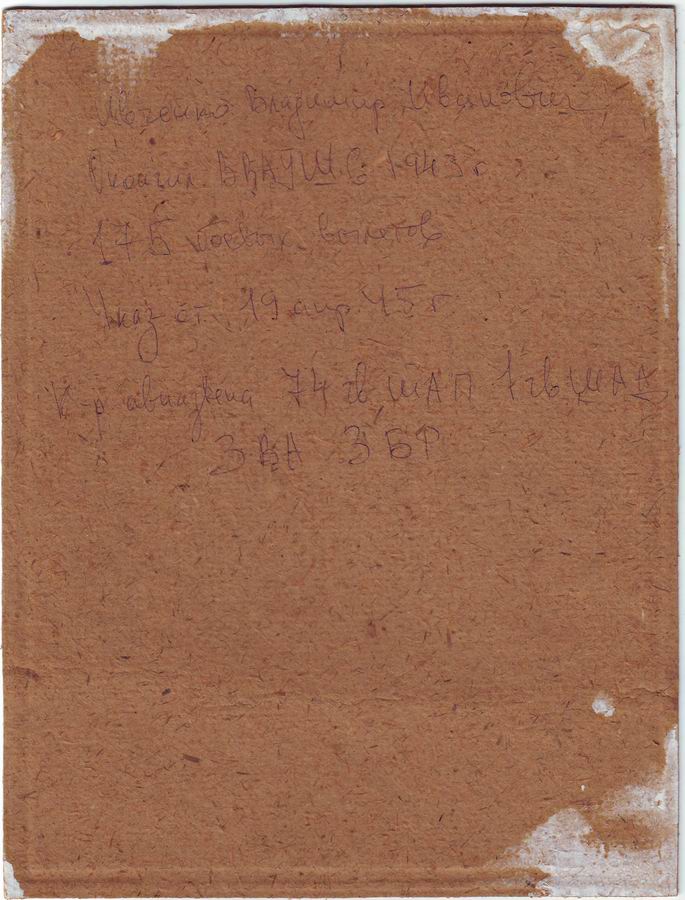 Владимир Иванович
Окончил БВАУШС 1943 г
175 боевых вылетов
Указ от 19 апр 45 г
К-р авиазвена 74 гв ШАП 1 гв ШАД
3 ВА 3 БР